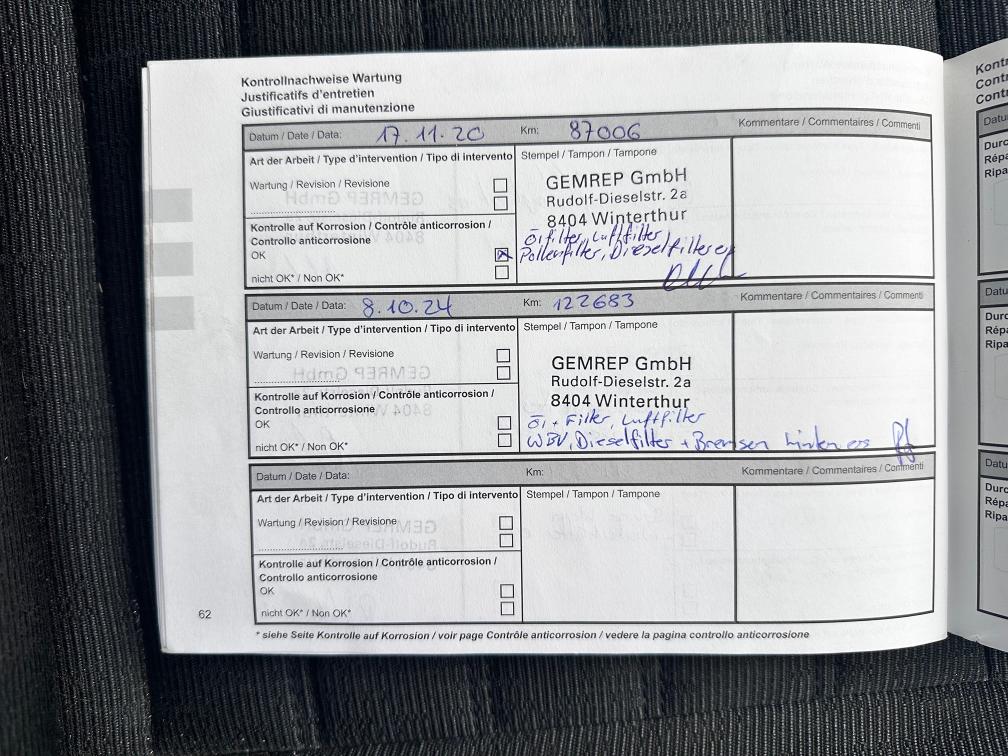 Kontrollnachweise Wartung
Justificatifs d'entretien
Giustificativi di manutenzione
Datum / Date / Data: 17.11.20 Km: 87006 Kommentare / Commentaires / Commenti
Art der Arbeit / Type d'intervention / Tipo di intervento Stempel / Tampon / Tampone
Wartung / Revision / Revisione
GEMREP GmbH
Rudolf-Dieselstr. 2a
8404 Winterthur
Kontrolle auf Korrosion / Contrôle anticorrosion /
Controllo anticorrosione
Ölfilter, Luftfilter
OK
Pollenfilter, Dieselfilter
nicht OK* / Non OK*
Datum / Date / Data: 8.10.24 Km: 122683 Kommentare / Commentaires / Commenti
Art der Arbeit / Type d'intervention / Tipo di intervento Stempel / Tampon / Tampone
Wartung / Revision / Revisione
GEMREP GmbH
Rudolf-Dieselstr. 2a
8404 Winterthur
Kontrolle auf Korrosion / Contrôle anticorrosion /
Controllo anticorrosione
Öl + Filter, Luftfilter
OK
WBV, Dieselfilter + Bremsen hinten ers
nicht OK* / Non OK*
Datum / Date / Data: Km: Kommentare / Commentaires / Commenti
Art der Arbeit / Type d'intervention / Tipo di intervento Stempel / Tampon / Tampone
Wartung / Revision / Revisione
Kontrolle auf Korrosion / Contrôle anticorrosion /
Controllo anticorrosione
OK
nicht OK* / Non OK*
62
* siehe Seite Kontrolle auf Korrosion / voir page Contrôle anticorrosion / vedere la pagina controllo anticorrosione